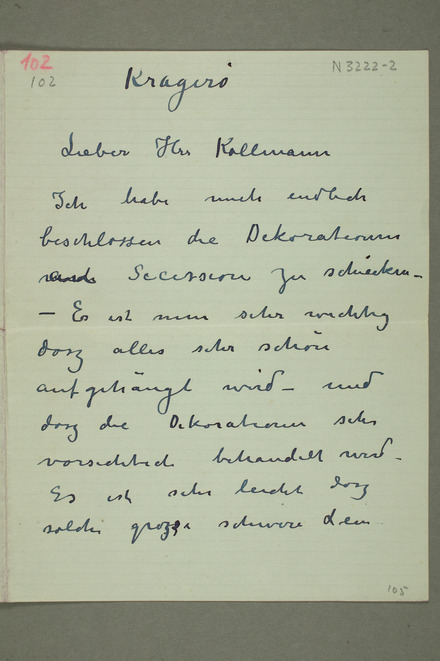 102
102
N 3222-2
Kragerö
Lieber Hrr Kollmann
Ich habe mich endlich
beschlossen die Dekorationen
nach Secession zu schicken –
– Es ist nun sehr wichtig
dasz alles sehr schön
aufgehängt wird – und
dasz die Dekorationen sehr
vorsichtich behandelt wird –
Es ist sehr leicht dasz
solche grosze schwere
105